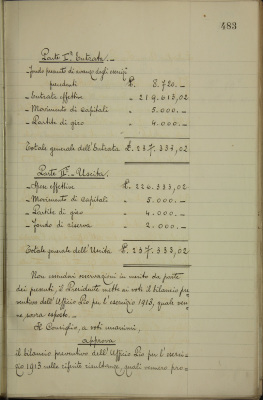 483
Parte Iª. Entrata. -
- Fondo presunto di avanzo degli esercizi
precedenti £. 8.720. -
- Entrate effettive „ 219.613,02
- Movimento di capitali „ 5.000. -
- Partite di giro „ 4.000. -
Totale generale dell'Entrata £. 237.333,02
Parte IIª. - Uscita. -
- Spese effettive £. 226.333,02
- Movimento di capitali „ 5.000. -
- Partite di giro „ 4.000. -
- Fondo di riserva „ 2.000. -
Totale generale dell'Uscita £. 237.333,02
Non essendovi osservazioni in merito da parte
dei presenti, il Presidente mette ai voti il bilancio pre-
ventivo dell'Ufficio Pio per l'esercizio 1913, quale ven-
ne sopra esposto. -
Il Consiglio, a voti unanimi,
approva
il bilancio preventivo dell'Ufficio Pio per l'eserci-
zio 1913 nelle risultanze, quali vennero pro=